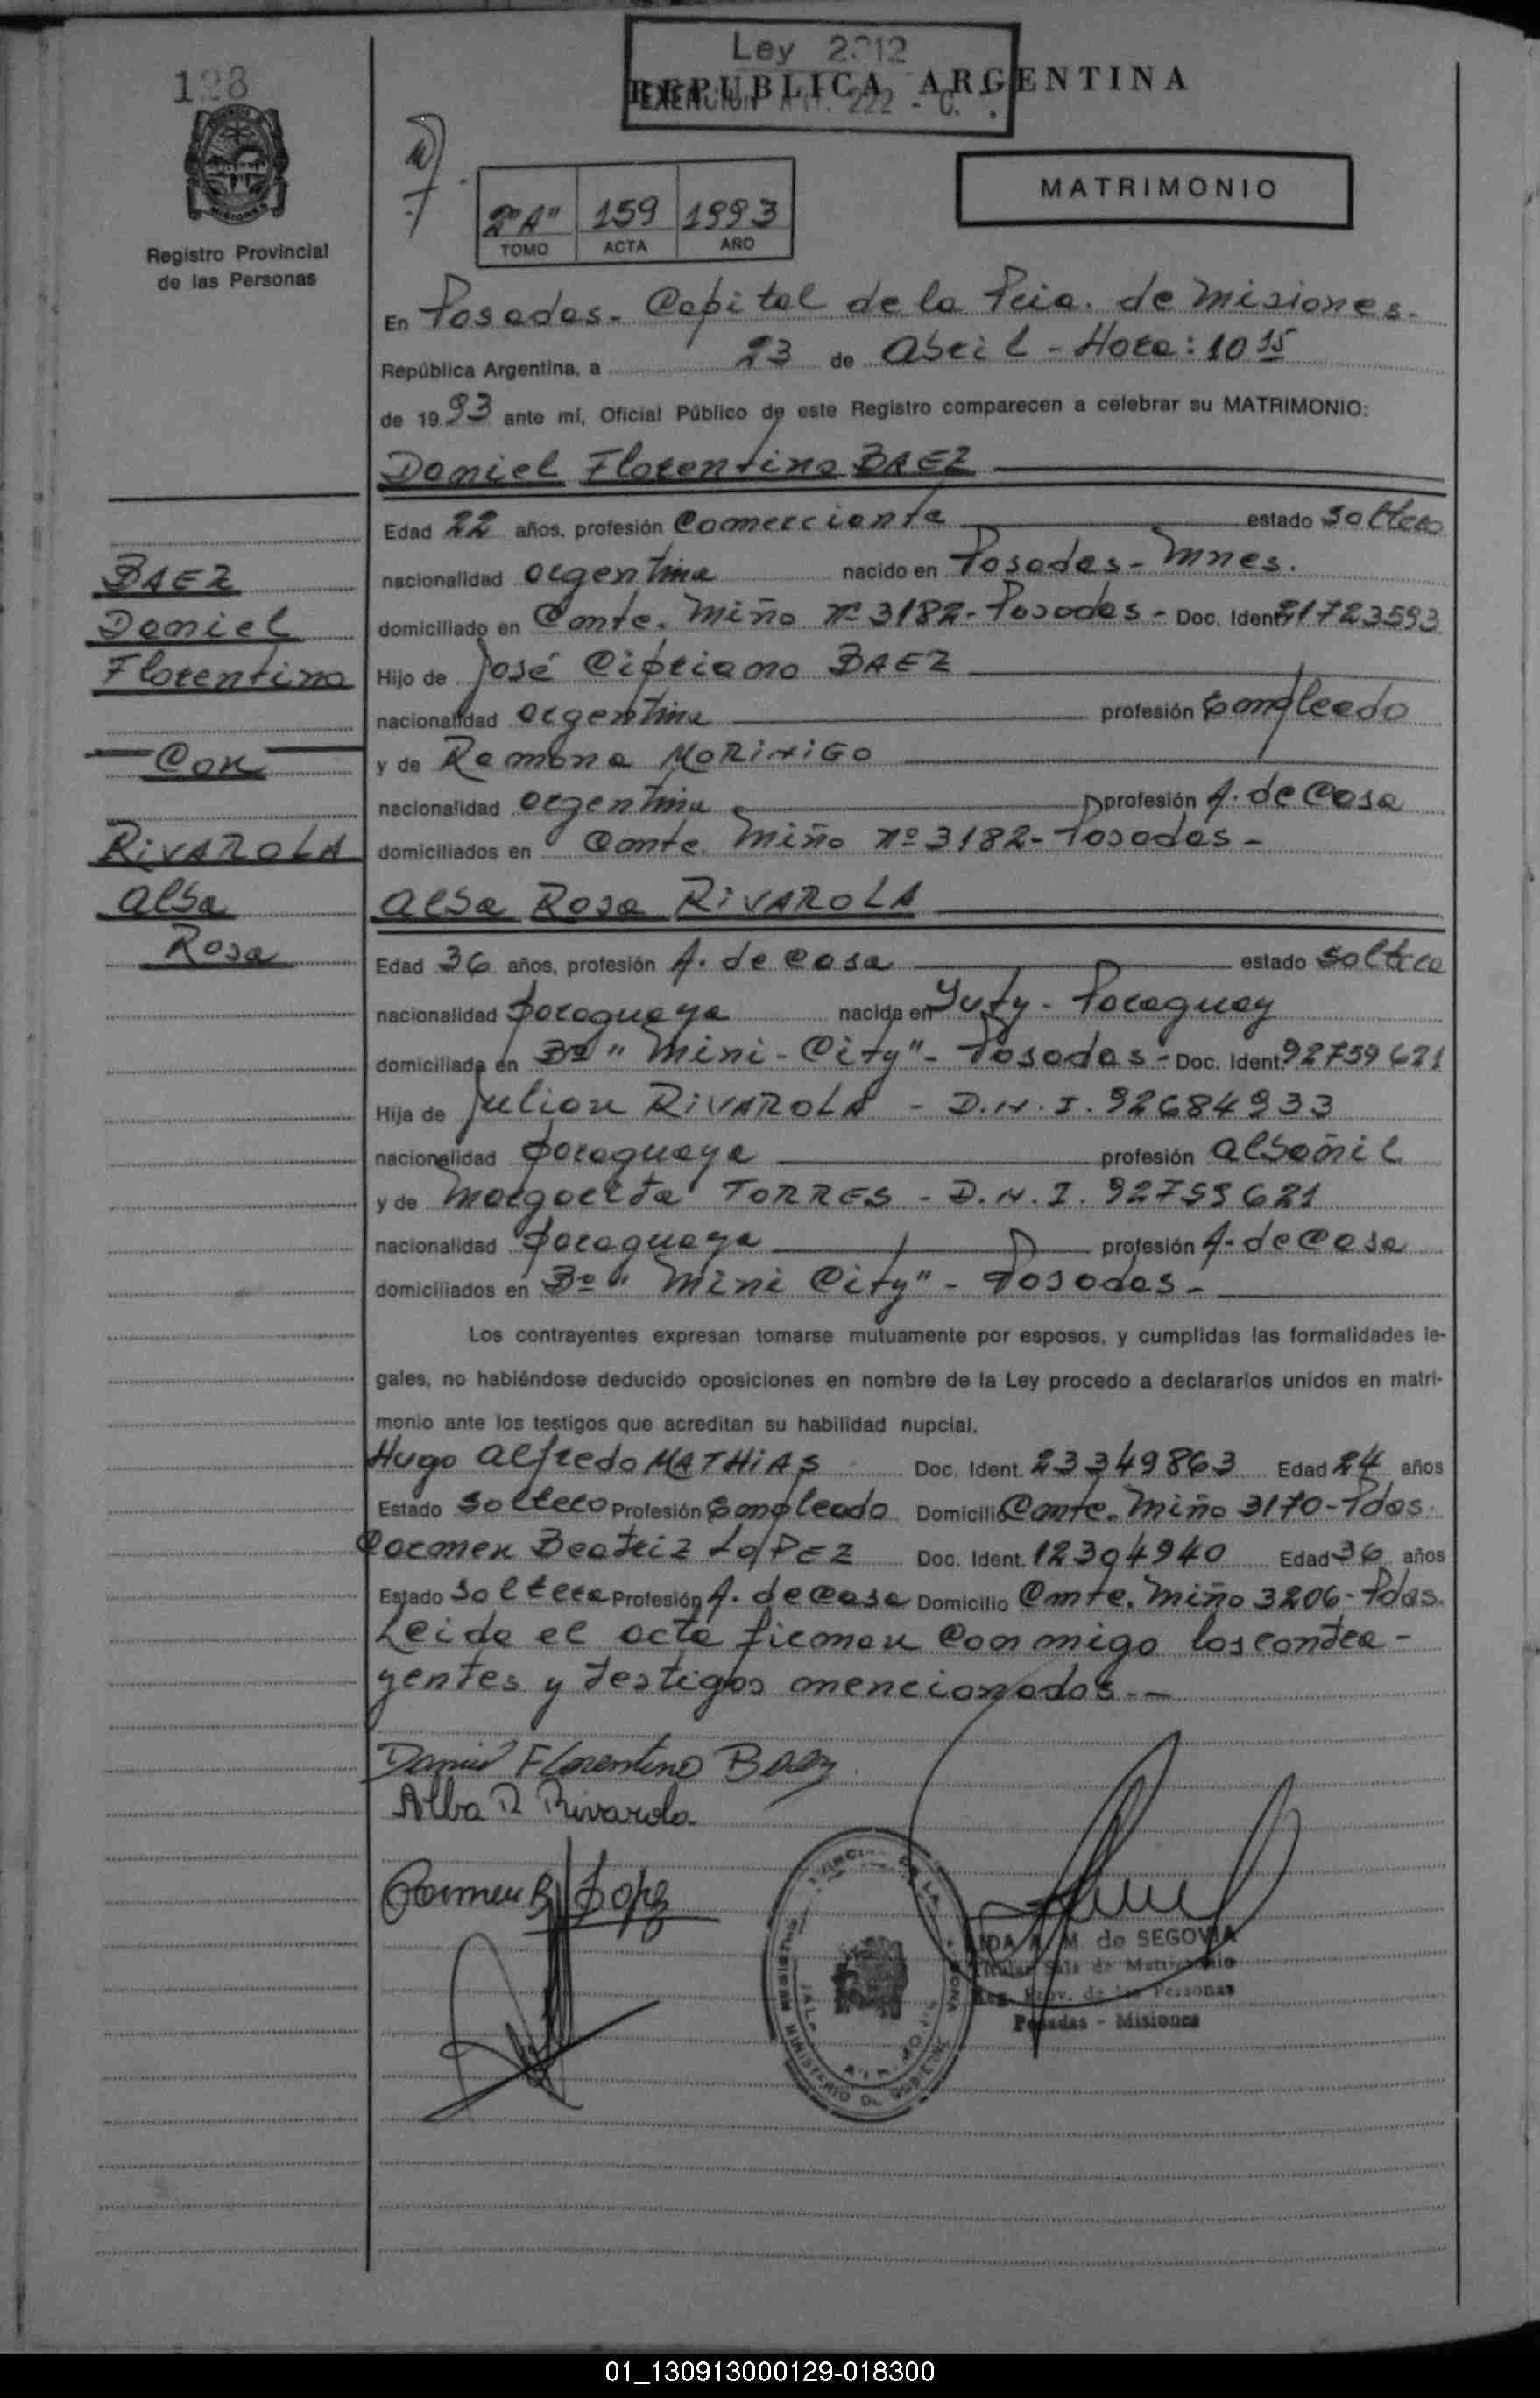 128
Ley 2312
REPUBLICA ARGENTINA
EXENCION ART. 222 - C.
MATRIMONIO
2º"A" 159 1993
TOMO ACTA AÑO
Registro Provincial
de las Personas
En Posadas - Capital de la Pcia. de Misiones.
República Argentina, a 23 de Abril - Hora: 10 15
de 1993 ante mí, Oficial Público de este Registro comparecen a celebrar su MATRIMONIO:
Daniel Florentino BAEZ
Edad 22 años, profesión Comerciante estado soltero
nacionalidad argentina nacido en Posadas - Mnes.
domiciliado en Comte. Miño Nº 3182 - Posadas - Doc. Ident. 21723593
Hijo de José Cipriano BAEZ
nacionalidad argentina profesión Empleado
y de Ramona MORINIGO
nacionalidad argentina profesión A. de Casa
domiciliados en Comte. Miño Nº 3182 - Posadas -
BAEZ
Daniel
Florentino
Con
RIVAROLA
Alba
Rosa
Alba Rosa RIVAROLA
Edad 36 años, profesión A. de casa estado soltera
nacionalidad paraguaya nacida en Yuty - Paraguay
domiciliada en Bº "Mini-City" - Posadas - Doc. Ident. 92759621
Hija de Julian RIVAROLA - D.N.I. 92684933
nacionalidad paraguaya profesión albañil
y de Margarita TORRES - D.N.I. 92759621
nacionalidad paraguaya profesión A. de Casa
domiciliados en Bº "Mini City" - Posadas -
Los contrayentes expresan tomarse mutuamente por esposos, y cumplidas las formalidades le-
gales, no habiéndose deducido oposiciones en nombre de la Ley procedo a declararlos unidos en matri-
monio ante los testigos que acreditan su habilidad nupcial.
Hugo Alfredo MATHIAS Doc. Ident. 23349863 Edad 24 años
Estado soltero Profesión Empleado Domicilio Comte. Miño 3170 - Pdas.
Carmen Beatriz LOPEZ Doc. Ident. 12304940 Edad 36 años
Estado soltera Profesión A. de casa Domicilio Comte. Miño 3206 - Pdas.
Leida el acta firman conmigo los contra-
yentes y testigos mencionados.-
Daniel Florentino Baez
Alba R Rivarola
Carmen B Lopez
M. de SEGOVIA
Titular Sala de Matrimonio
Reg. Prov. de las Personas
Posadas - Misiones
MINISTERIO DE GOBIERNO
01_130913000129-018300